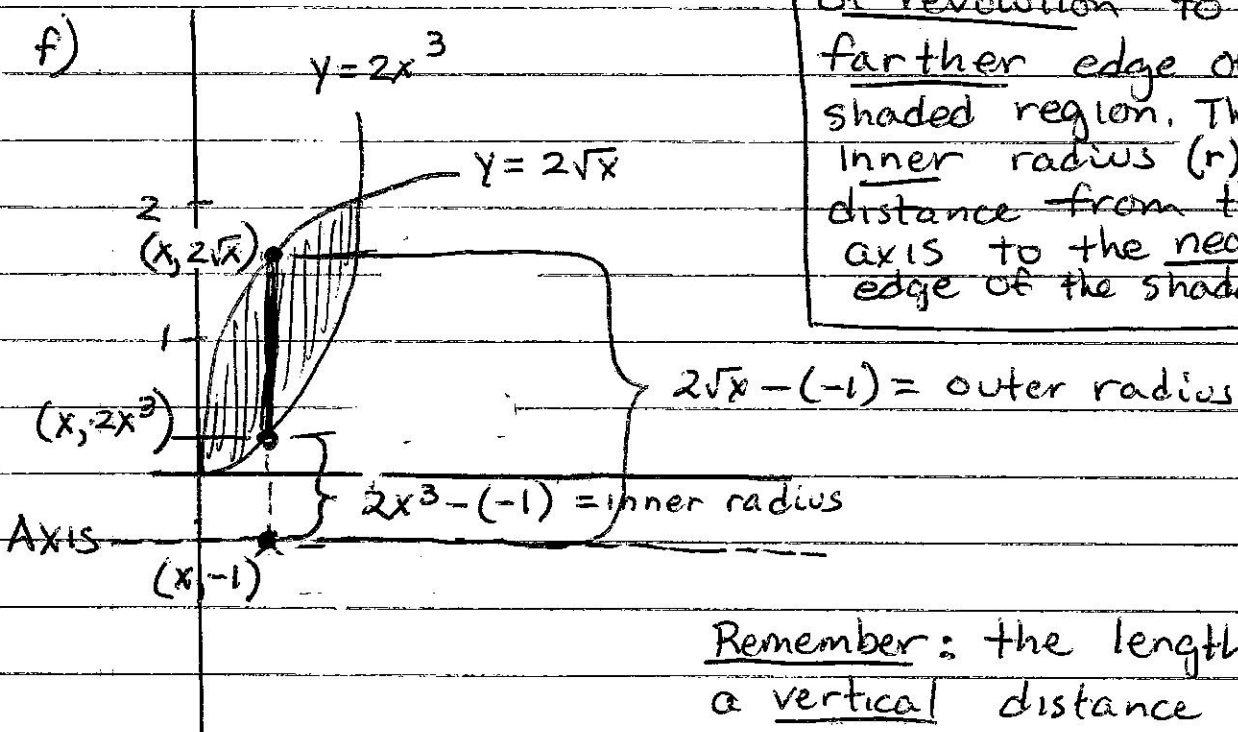 f)
y = 2x³
y = 2√x
2
(x, 2√x)
1
(x, 2x³)
2√x - (-1) = outer radius
2x³ - (-1) = inner radius
Axis
(x, -1)
of revolution to
farther edge of
shaded region. Th
inner radius (r)
distance from t
axis to the nea
edge of the shad
Remember: the length
a vertical distance